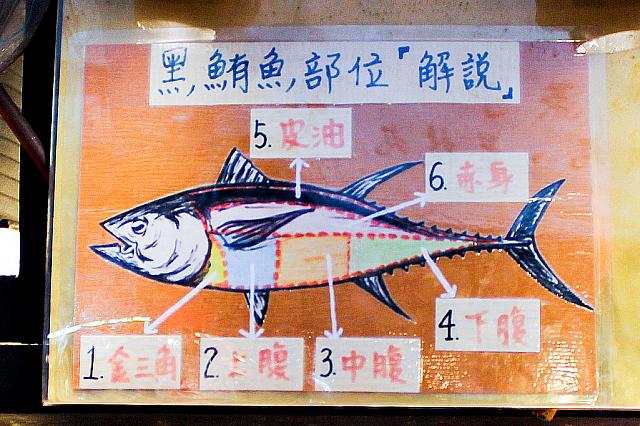 黑,鮪魚,部位『解說』
5.皮油
6.赤身
1.金三角
2.上腹
3.中腹
4.下腹